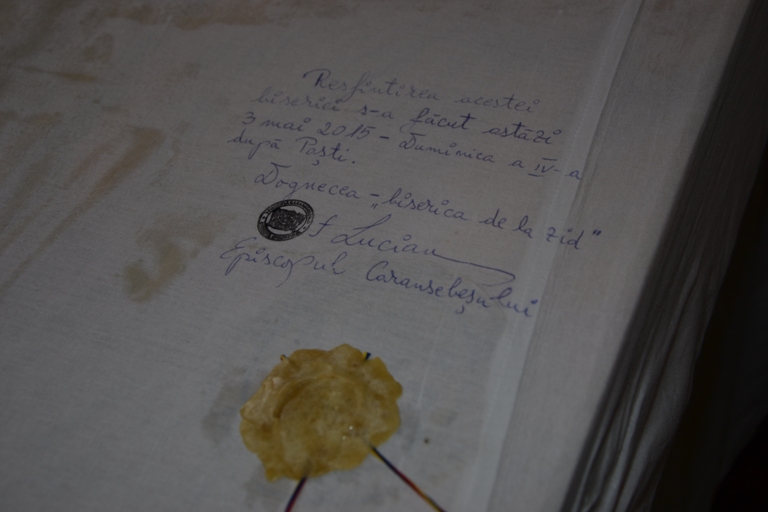 Resfintirea acestei
biserici s-a făcut astăzi
3 mai 2015 - Duminica a IV-a
după Paști.
Dognecea - "biserica de la zid"
† Lucian
Episcopul Caransebeșului